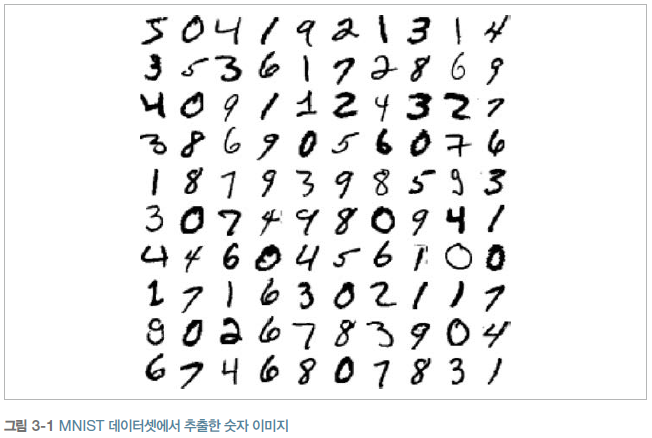 5 0 4 1 9 2 1 3 1 4
3 5 3 6 1 7 2 8 6 9
4 0 9 1 1 2 4 3 2 7
3 8 6 9 0 5 6 0 7 6
1 8 7 9 3 9 8 5 9 3
3 0 7 4 9 8 0 9 4 1
4 4 6 0 4 5 6 1 0 0
1 7 1 6 3 0 2 1 1 7
9 0 2 6 7 8 3 9 0 4
6 7 4 6 8 0 7 8 3 1
그림 3-1 MNIST 데이터셋에서 추출한 숫자 이미지